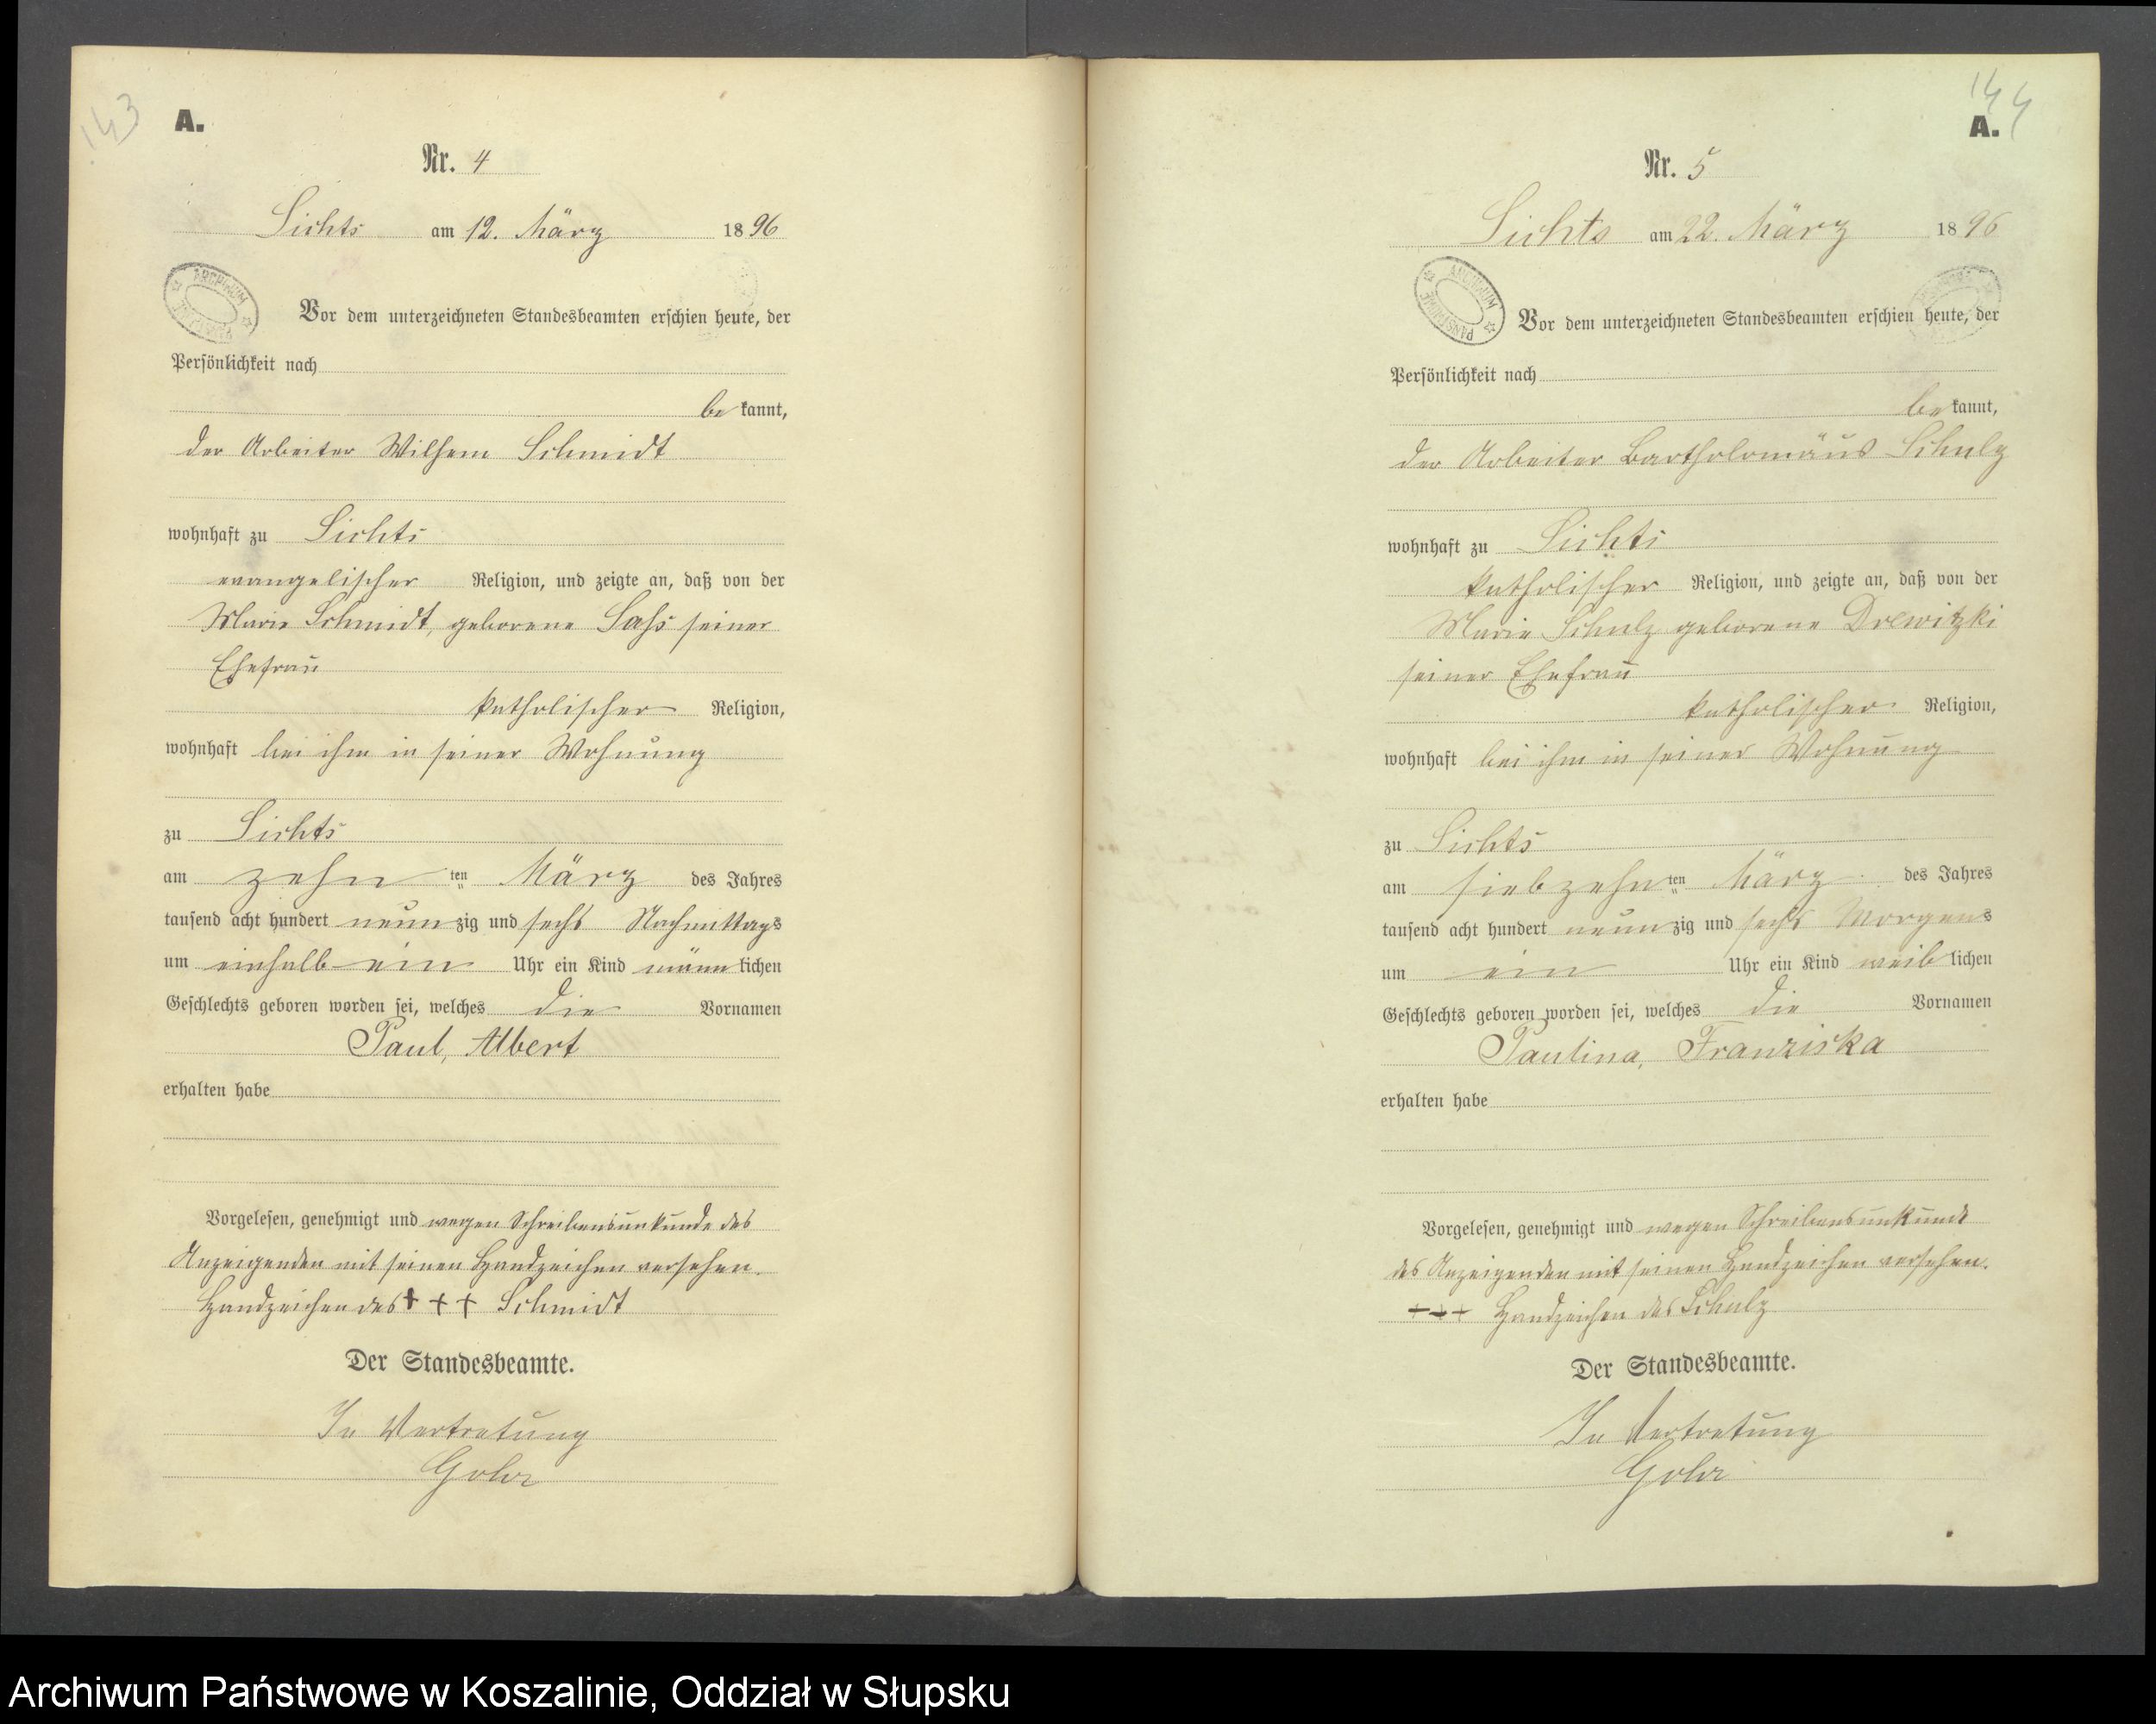 143
A.
Nr. 4
Sichts am 12. März 1896
ARCHIWUM
Vor dem unterzeichneten Standesbeamten erschien heute, der
Persönlichkeit nach
be kannt,
der Arbeiter Wilhem Schmidt
wohnhaft zu Sichts
evangelischer Religion, und zeigte an, daß von der
Marie Schmidt, geborene Sass seiner
Ehefrau
katholischer Religion,
wohnhaft bei ihm in seiner Wohnung
zu Sichts
am zehn ten März des Jahres
tausend acht hundert neunzig und sechs Nachmittags
um einhalb ein Uhr ein Kind männlichen
Geschlechts geboren worden sei, welches die Vornamen
Paul, Albert
erhalten habe
Vorgelesen, genehmigt und wegen Schreibensunkunde des
Anzeigenden mit seinen Handzeichen versehen.
Handzeichen des + + + Schmidt
Der Standesbeamte.
In Vertretung
144
A.
Nr. 5
Sichts am 22. März 1896
ARCHIWUM PAŃSTWOWE
Vor dem unterzeichneten Standesbeamten erschien heute, der
Persönlichkeit nach
be kannt,
der Arbeiter Bartholomäus Schulz
wohnhaft zu Sichts
katholischer Religion, und zeigte an, daß von der
Marie Schulz geborene Drewitzki
seiner Ehefrau
katholischer Religion,
wohnhaft bei ihm in seiner Wohnung
zu Sichts
am siebzehn ten März des Jahres
tausend acht hundert neunzig und sechs Morgens
um ein Uhr ein Kind weiblichen
Geschlechts geboren worden sei, welches die Vornamen
Paulina, Franziska
erhalten habe
Vorgelesen, genehmigt und wegen Schreibensunkunde
des Anzeigenden mit seinen Handzeichen versehen.
+++ Handzeichen des Schulz
Der Standesbeamte.
In Vertretung
Archiwum Państwowe w Koszalinie, Oddział w Słupsku